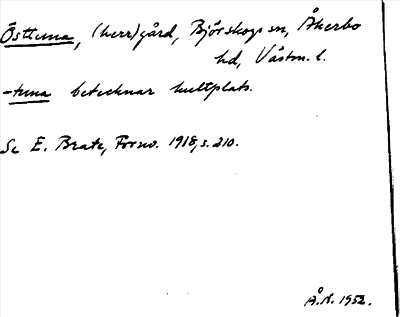 Östtuna, (herr)gård, Björskogs sn, Åkerbo
hd, Västm. l.
-tuna betecknar kultplats.
Se E. Brate, Fornv. 1918, s. 210.
Å.N. 1952.